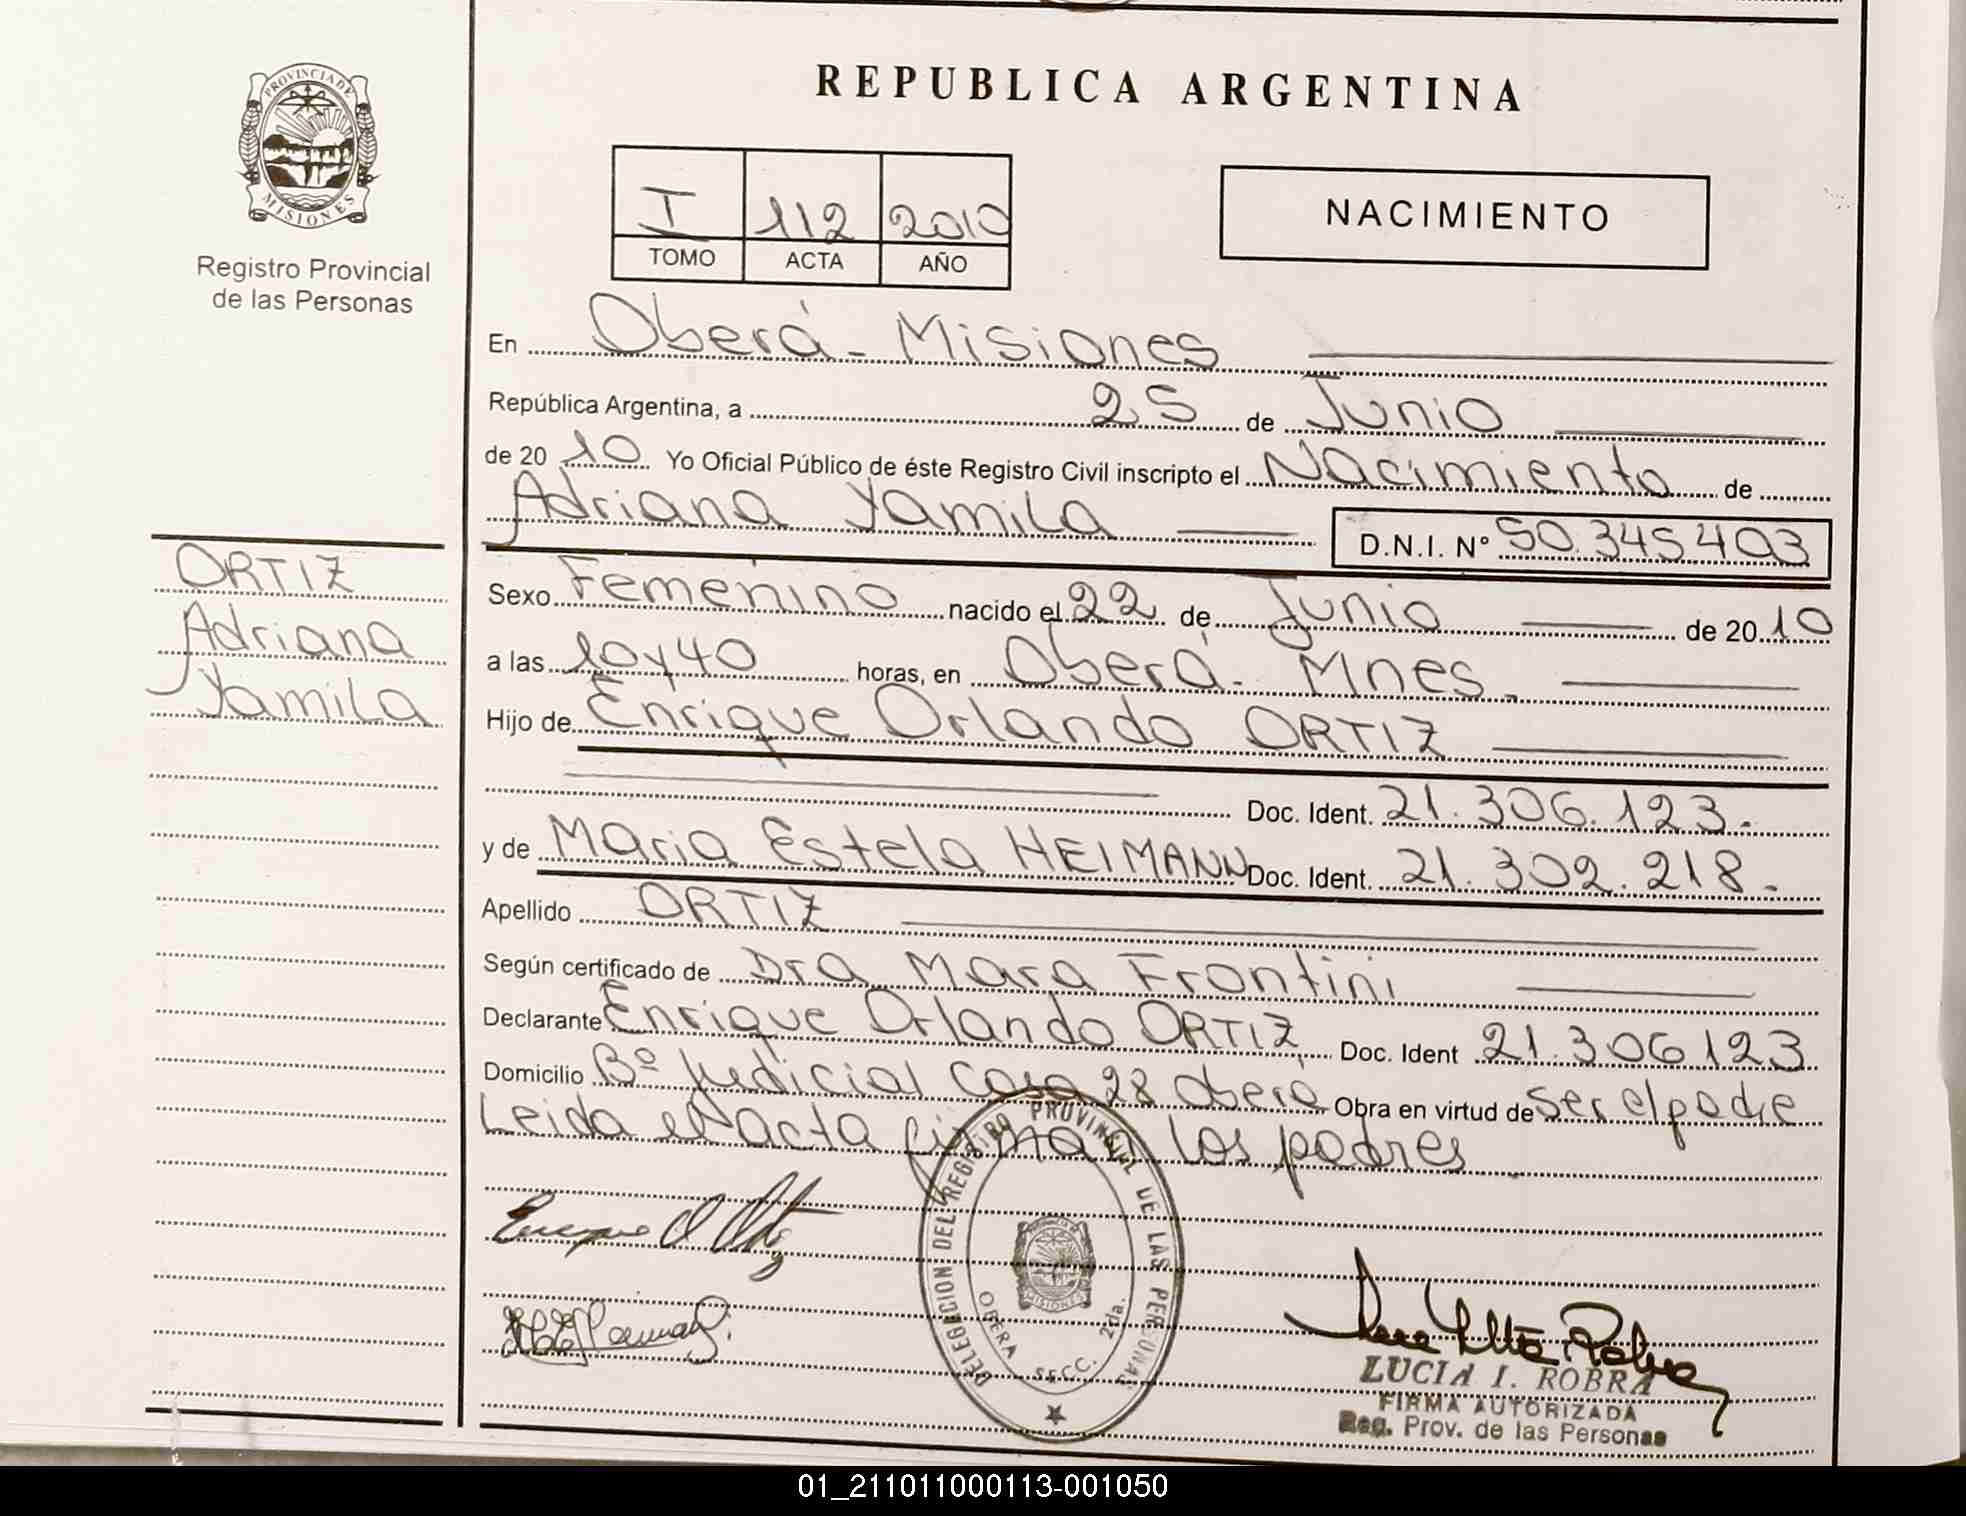 REPUBLICA ARGENTINA
PROVINCIA DE
MISIONES
Registro Provincial
de las Personas
I 112 2010
TOMO ACTA AÑO
NACIMIENTO
En Oberá - Misiones
República Argentina, a 25 de Junio
de 20 10 Yo Oficial Público de éste Registro Civil inscripto el Nacimiento de
Adriana Yamila D.N.I. N° 50.345403
ORTIZ
Adriana
Yamila
Sexo Femenino nacido el 22 de Junio de 20 10
a las 10 y 40 horas, en Oberá - Mnes.
Hijo de Enrique Orlando ORTIZ
Doc. Ident. 21.306.123.
y de Maria Estela HEIMANN Doc. Ident. 21.302.218.
Apellido ORTIZ
Según certificado de Dra Mara Frontini
Declarante Enrique Orlando ORTIZ Doc. Ident 21.306123
Domicilio Bº Judicial Casa 28 Oberá Obra en virtud de ser el padre
Leida el acta firman los padres
DELEGACION DEL REGISTRO PROVINCIAL DE LAS PERSONAS
MISIONES
OBERA SECC. 2da.
LUCIA I. ROBRA
FIRMA AUTORIZADA
Reg. Prov. de las Personas
01_211011000113-001050